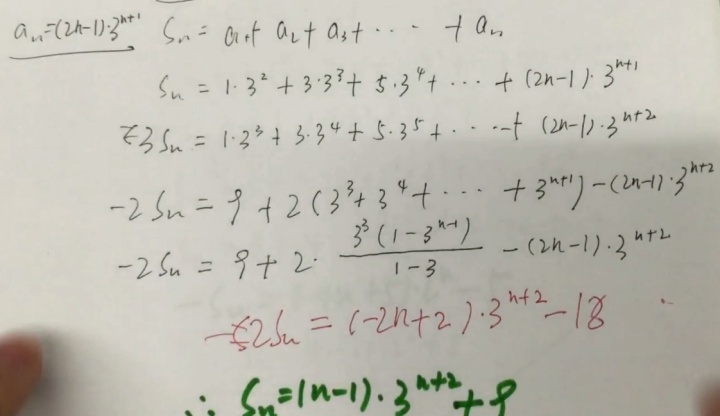 aₙ=(2n-1)·3ⁿ⁺¹ Sₙ = a₁+ a₂+ a₃+ ··· + aₙ
Sₙ = 1·3² + 3·3³ + 5·3⁴ + ··· + (2n-1)·3ⁿ⁺¹
3Sₙ = 1·3³ + 3·3⁴ + 5·3⁵ + ··· + (2n-1)·3ⁿ⁺²
-2Sₙ = 9 + 2(3³+3⁴+ ··· + 3ⁿ⁺¹) - (2n-1)·3ⁿ⁺²
-2Sₙ = 9 + 2· 3³(1-3ⁿ⁻¹)/(1-3) - (2n-1)·3ⁿ⁺²
-2Sₙ = (-2n+2)·3ⁿ⁺² - 18
∴ Sₙ = (n-1)·3ⁿ⁺² + 9